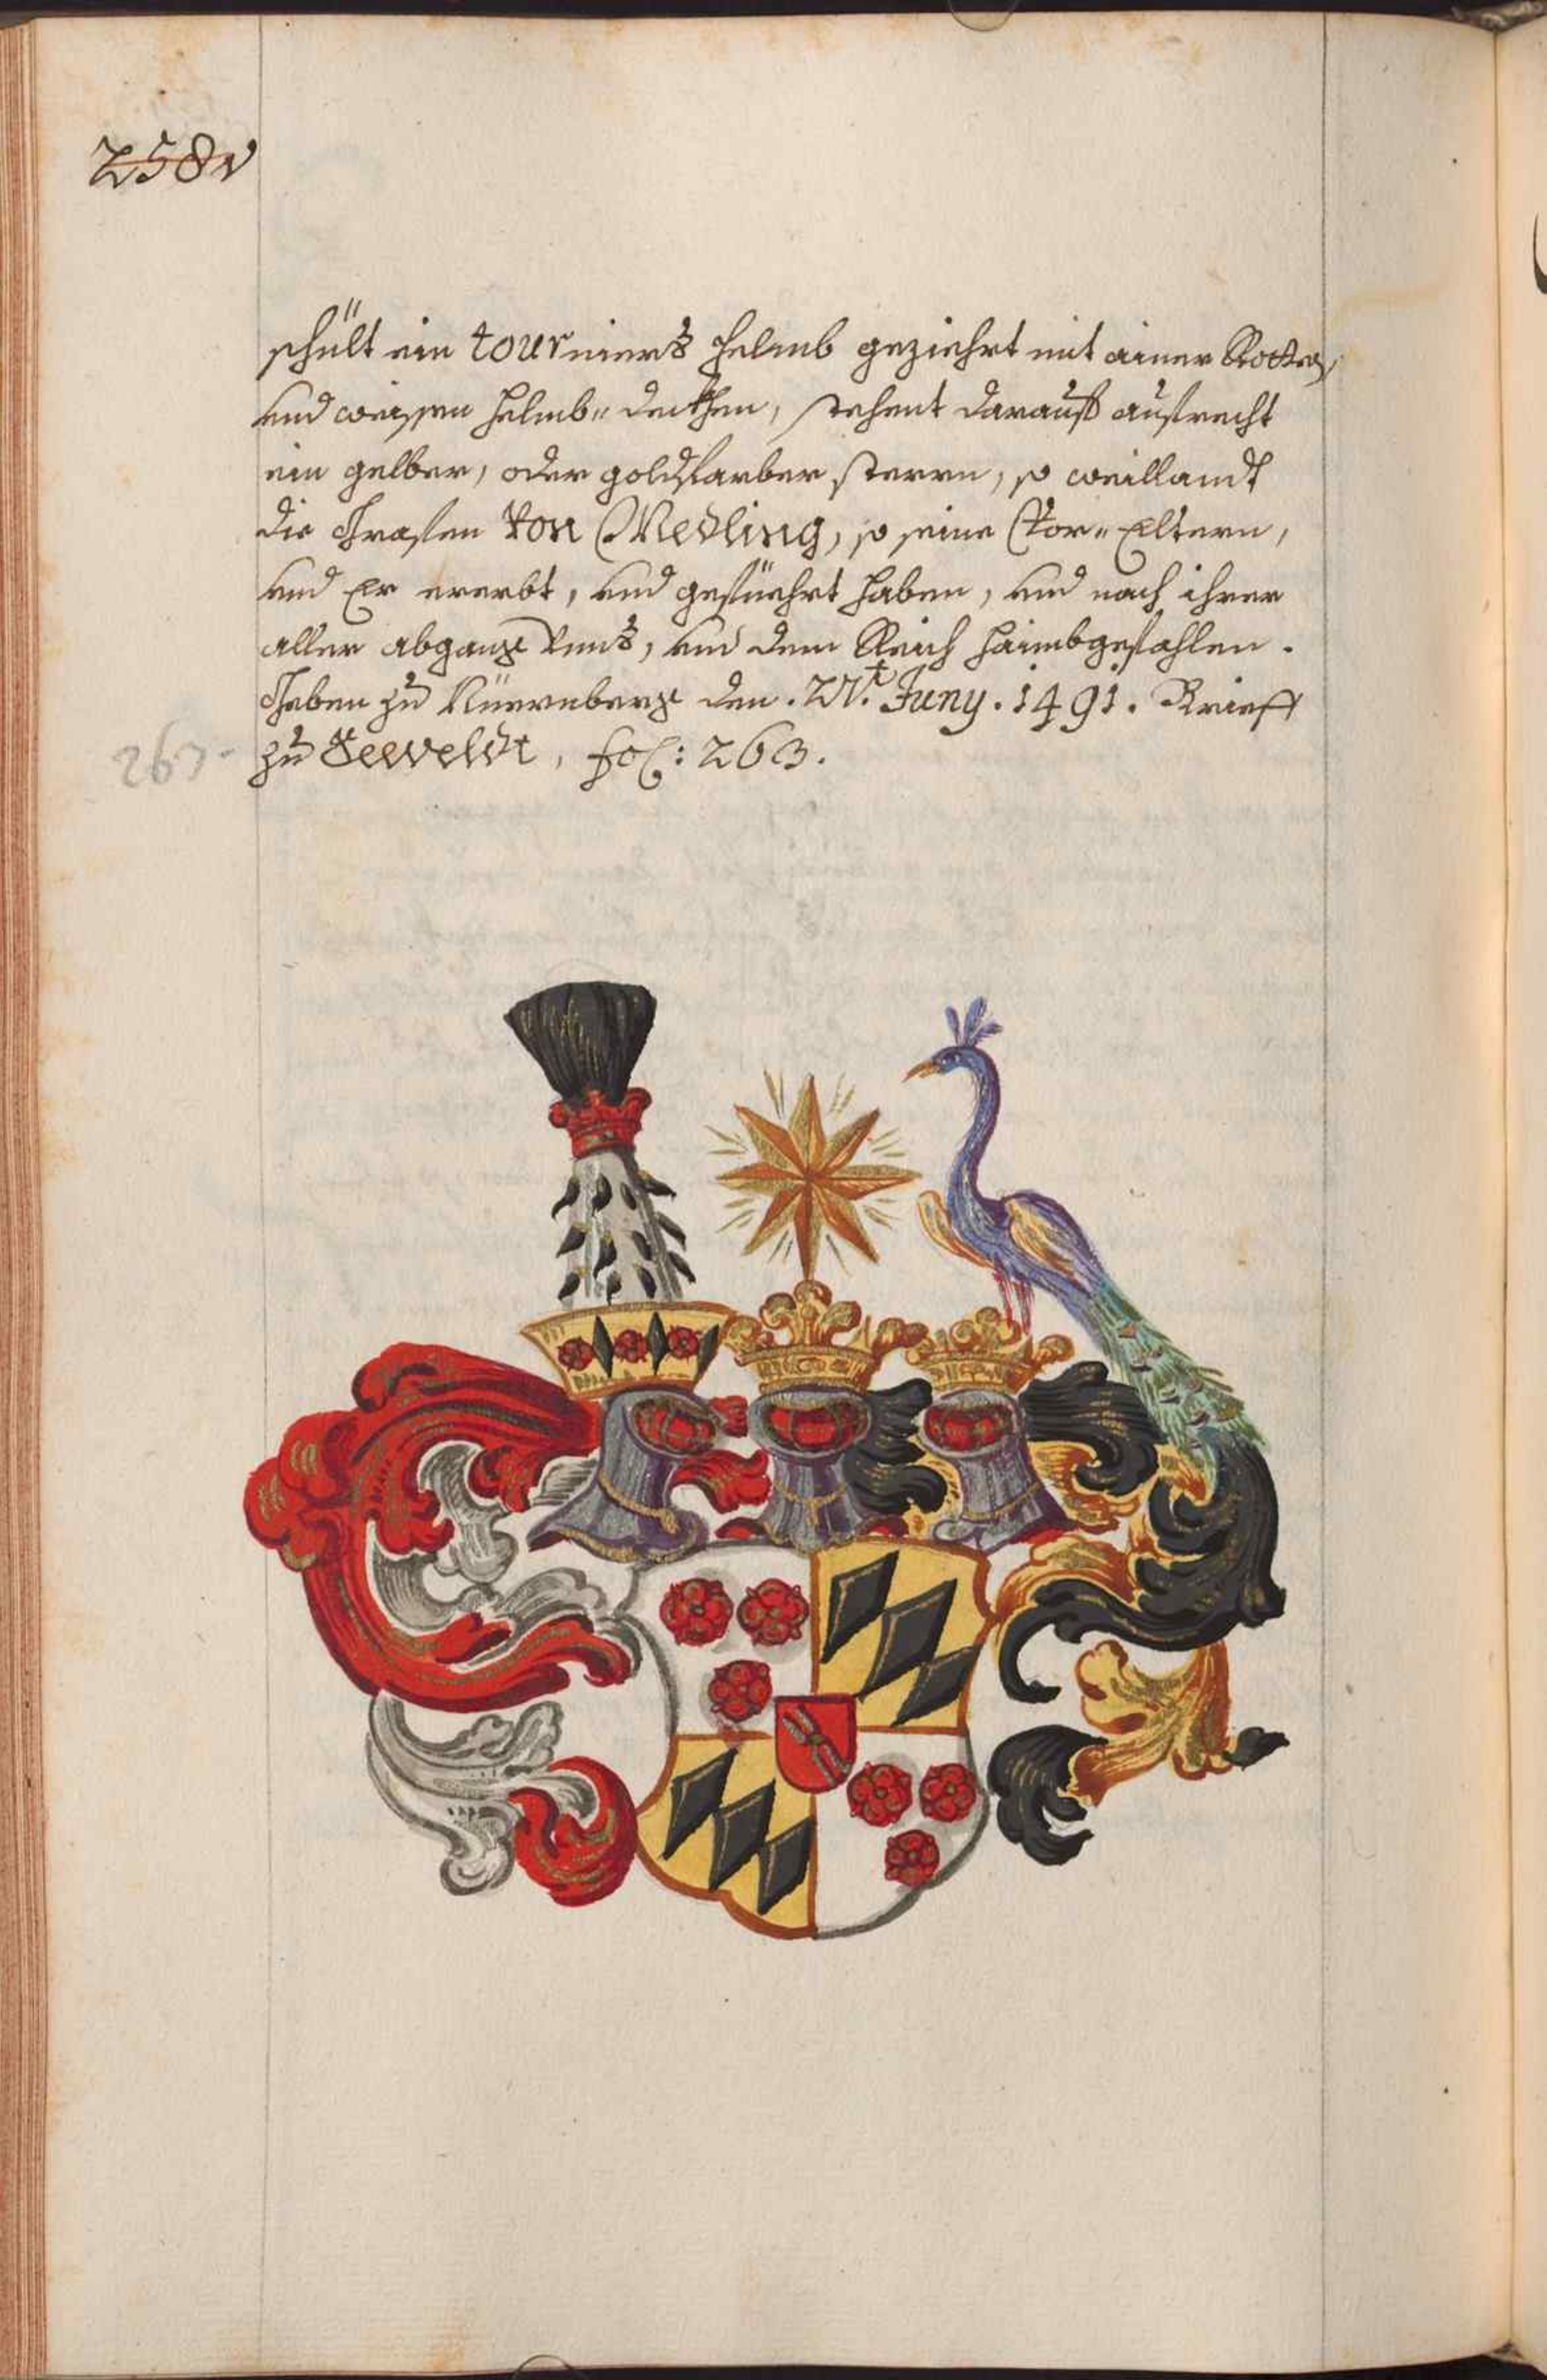 258v
schült ein tourniers helmb geziehrt mit ainer Rotten,
und weissen helmb= deckhen, stehent darauff aufrecht
ein gelber, oder goldfarber sterrn, so weillandt
die Grafen von Medling, so seine Vor= Eltern,
und Er ererbt, und gefüehrt haben, und nach ihrer
aller abgang unns, und dem Reich haimbgefahlen.
Geben zu Nüernberg den . 27.t Juny . 1491 . Brieff
zu Seeveldt, fol: 263.
263.